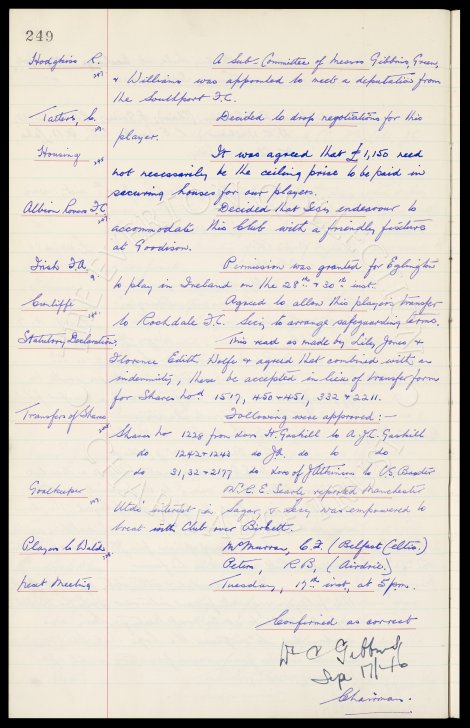 249
Hodgkiss R. A Sub-Committee of Messrs Gibbins, Green,
& Williams was appointed to meet a deputation from
the Southport F.C.
Tatters, C. Decided to drop negotiations for this
player.
Housing It was agreed that £1,150 need
not necessarily be the ceiling price to be paid in
securing houses for our players.
Albion Rovers F.C. Decided that Secy endeavour to
accommodate this Club with a friendly fixture
at Goodison.
Irish F.A. Permission was granted for Eglington
to play in Ireland on the 28th & 30th inst.
Cunliffe Agreed to allow this players transfer
to Rochdale F.C. Secy to arrange safeguarding terms.
Statutory Declaration. This read as made by Lily Jones &
Florence Edith Wolfe & agreed that combined with an
indemnity, these be accepted in lieu of transfer form
for Shares Nos 1517, 450 & 451, 332 & 2211.
Transfers of Shares Following were approved:—
Shares No 1228 from Exors H. Gaskill to A.J.C. Gaskill
do 1242 & 1243 do JR. do to do
do 31, 32 & 2177 do Exors of J. Atkinson to V.S. Baxter
Goalkeeper Mr. C. E. Searle reported Manchester
Utds interest in Sagar, & Secy was empowered to
treat with Club over Birkett.
Players to Watch McMurran, C.F. (Belfast Celtic.)
Peters, R.B. (Airdrie.)
Next Meeting Tuesday, 17th inst, at 5pm.
Confirmed as correct
W C Gibbins
Sep 17/46
Chairman.